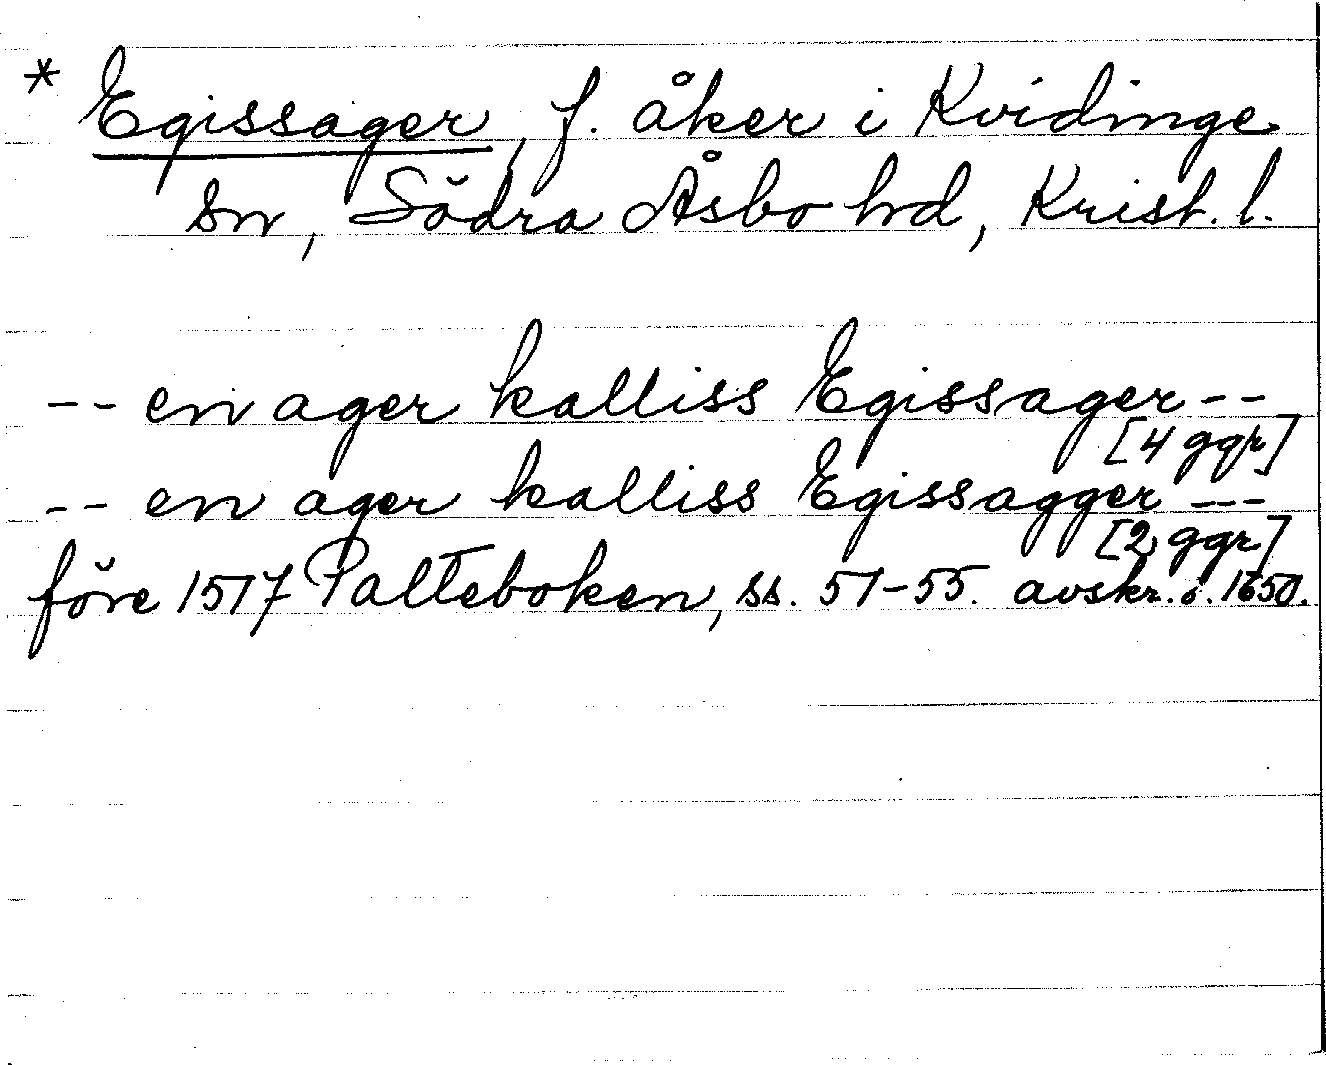 * Egissager, f. åker i Kvidinge
sn, Södra Åsbo hd, Krist. l.
-- en ager kalliss Egissager --
[4 ggr]
-- en ager kalliss Egissagger --
[2 ggr]
före 1517 Palteboken, ss. 51-55. avskr. ö. 1650.